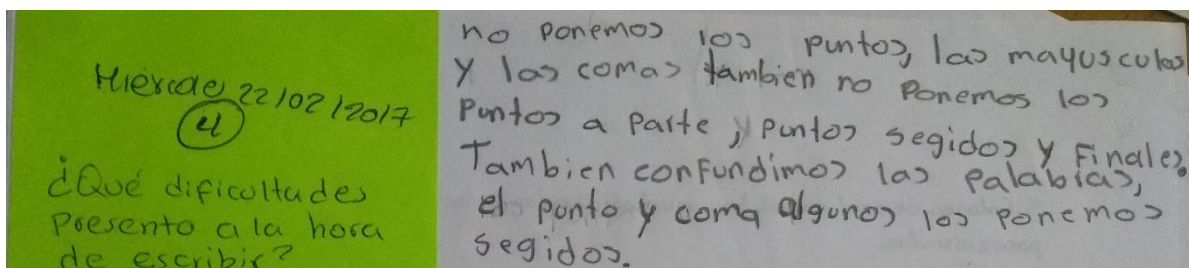 Miércole 22/02/2017
4
¿Qué dificultades
presento a la hora
de escribir?
no ponemos los puntos, las mayusculas
y las comas tambien no ponemos los
puntos a parte, puntos segidos y finales.
Tambien confundimos las palabras,
el punto y coma algunos los ponemos
segidos.